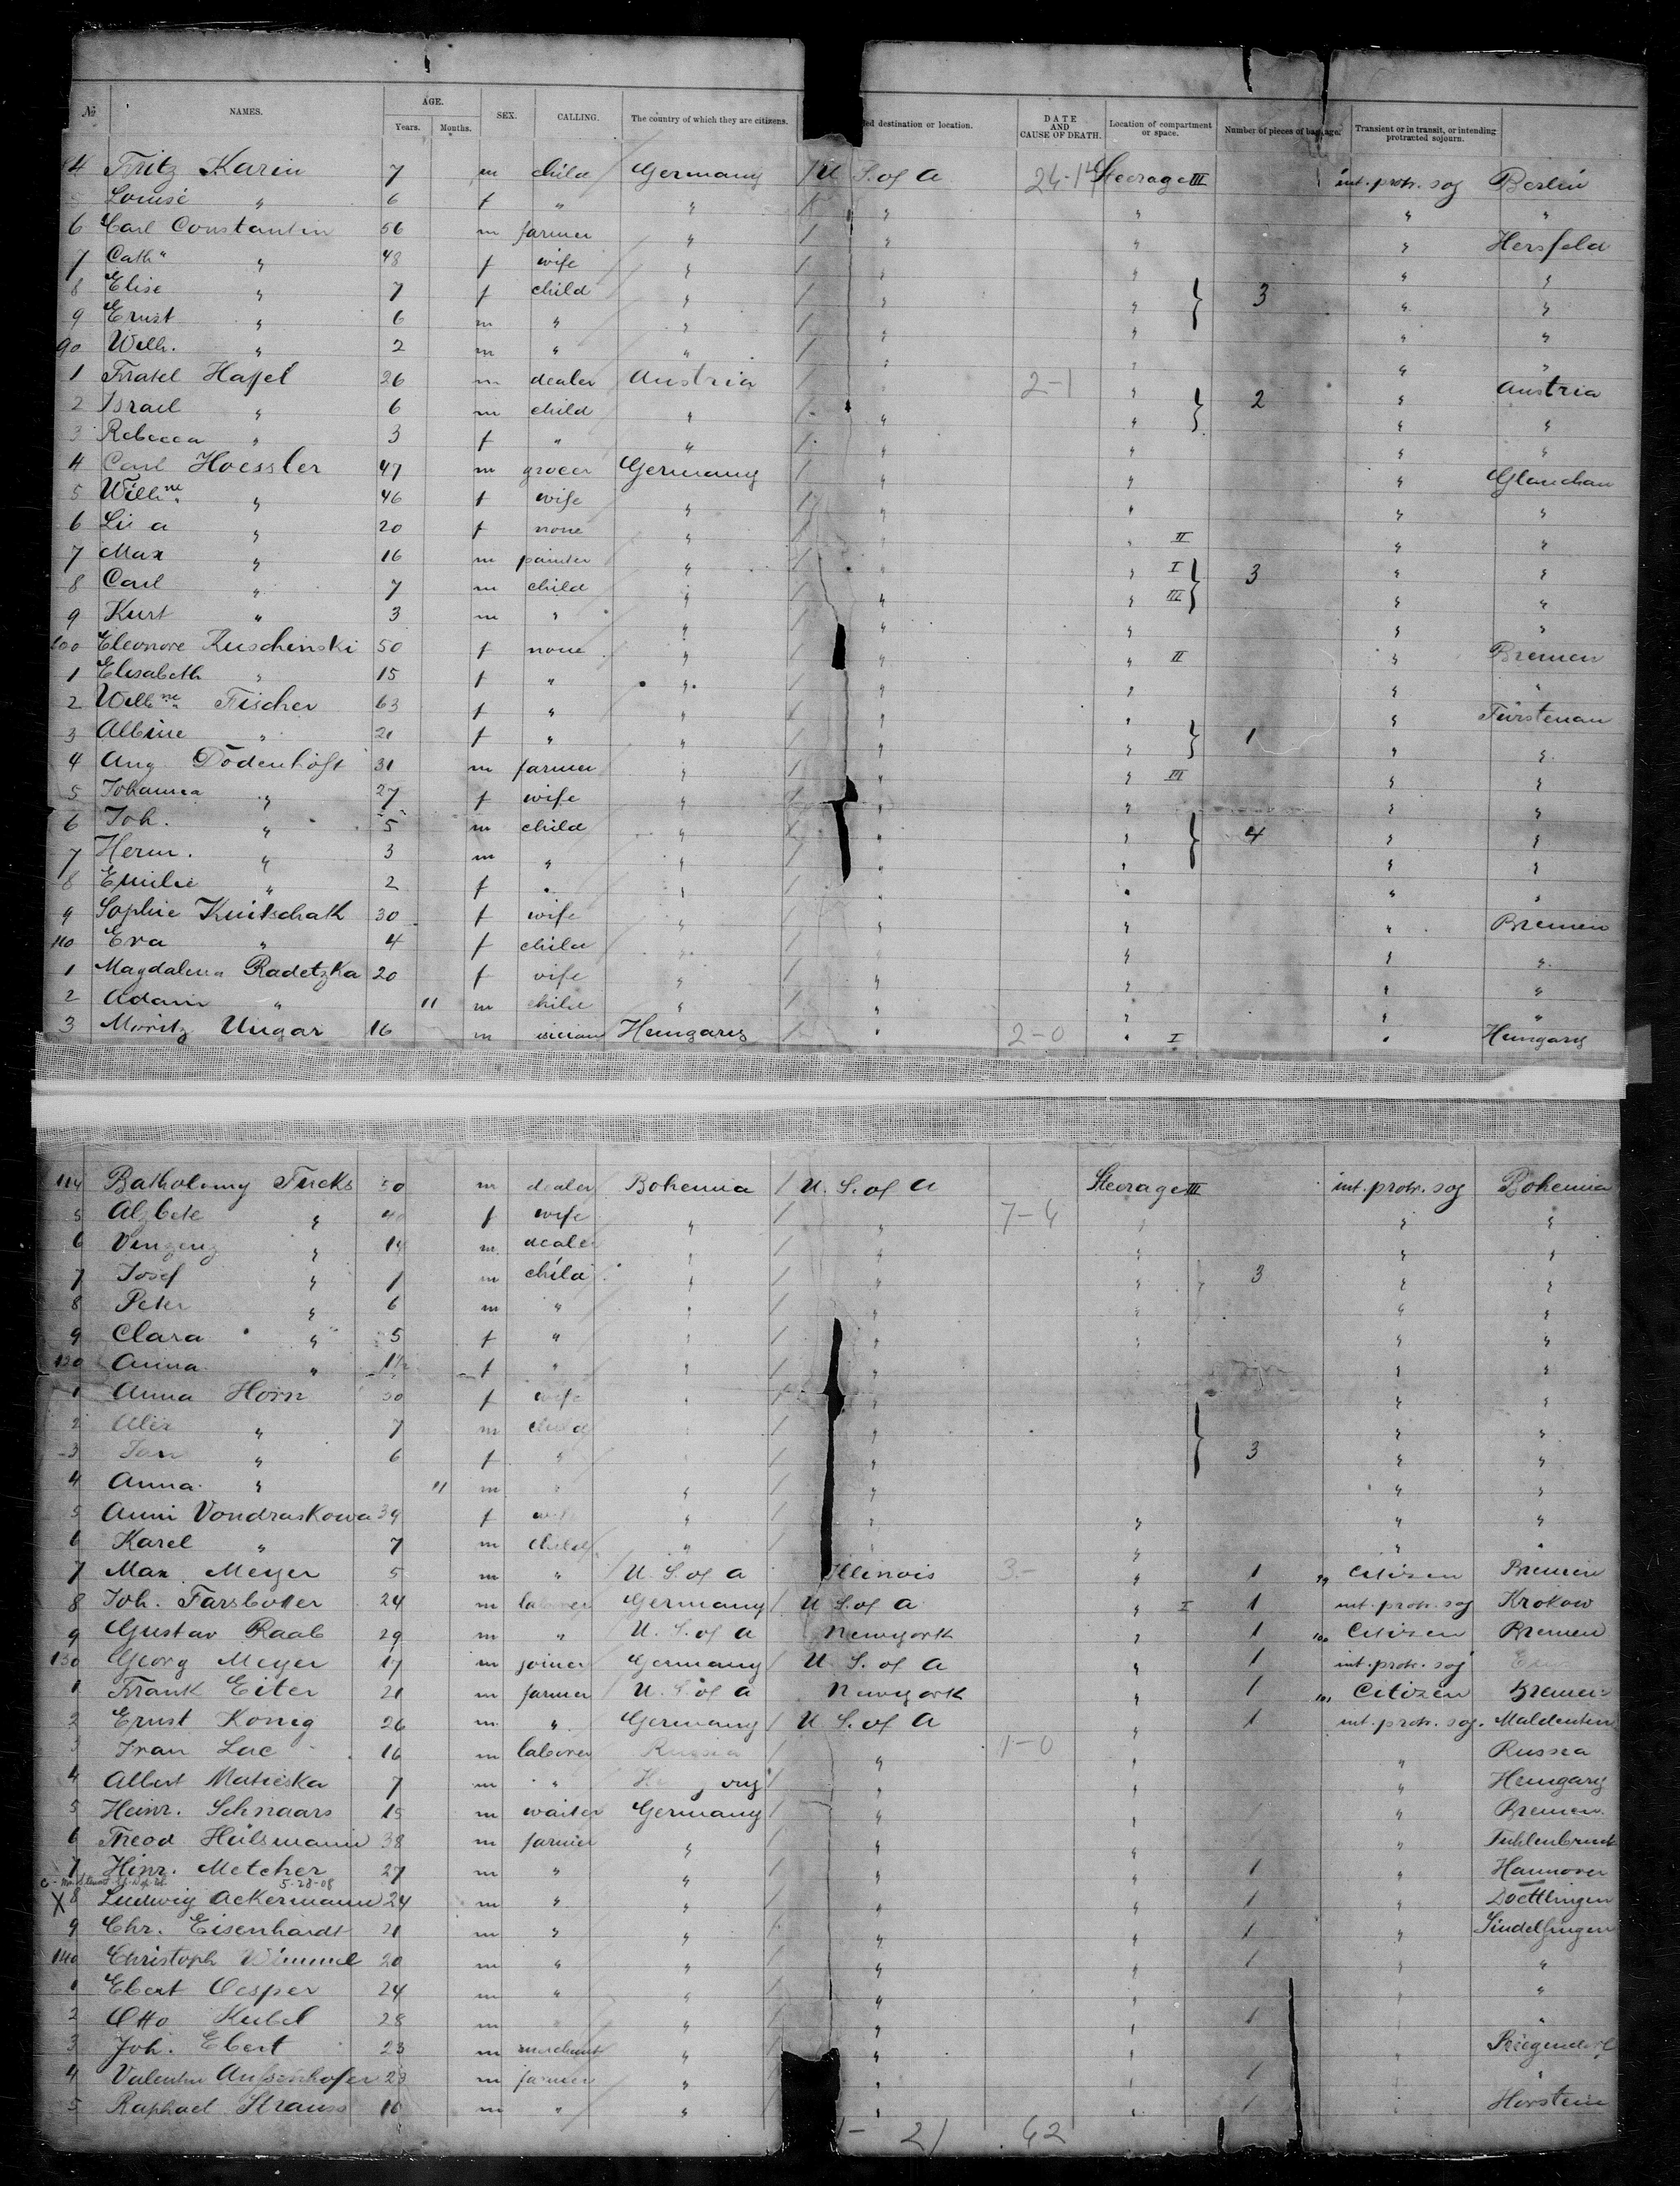 № NAMES. AGE. Years. Months. SEX. CALLING. The country of which they are citizens. ed destination or location. DATE AND CAUSE OF DEATH. Location of compartment or space. Number of pieces of baggage. Transient or in transit, or intending protracted sojourn.
4 Fritz Karin 7 m child Germany / U. S. of A 24-14 Steerage III int. protr. soj Berlin
Louise " 6 f " " / " " " "
6 Carl Constantin 56 m farmer " / " " " Hersfeld
7 Cath" " 48 f wife " / " " " "
8 Elise " 7 f child " / " " } 3 " "
9 Ernst " 6 m " " / " " " "
90 Wilh. " 2 m " " / " " " "
1 Hassel 26 m dealer Austria / " 2-1 " " Austria
2 Israel " 6 m child " / " " } 2 " "
3 Rebecca " 3 f " " / " " " "
4 Carl Hoessler 47 m grocer Germany / " " " Glauchau
5 Wilhne " 46 f wife " / " " " "
6 " 20 f none " / " " II " "
7 Max " 16 m painter " / " " I } 3 " "
8 Carl " 7 m child " / " " III " "
9 Kurt " 3 m " " / " " " "
100 Eleonore Ruschinski 50 f none " / " " II " Bremen
1 Elisabeth " 15 f " " / " " " "
2 Wilhne Fischer 63 f " " / " " " Fürstenau
3 Albine " 21 f " " / " " } 1 " "
4 Aug. Dodenhöft 31 m farmer " / " " III " "
5 Johanna " 27 f wife " / " " " "
6 Joh. " 5 m child " / " " } 4 " "
7 Herm. " 3 m " " / " " " "
8 Emilie " 2 f " " / " " " "
9 Sophie Knitschak 30 f wife " / " " " Bremen
110 Eva " 4 f child " / " " " "
1 Magdalena Radetzka 20 f wife " / " " " "
2 Adam " 11 m child " / " " " "
3 Moritz Ungar 16 m Hungary / " 2-0 " I " Hungary
114 Batholomy Fucks 50 m dealer Bohemia / U. S. of A Steerage III int. protr. soj Bohemia
5 Alzbete " 40 f wife " / " 7-4 " " "
6 Venzenz " 14 m dealer " / " " " "
7 Josef " 7 m child " / " " } 3 " "
8 Peter " 6 m " " / " " " "
9 Clara " 5 f " " / " " " "
120 Anna " 1½ f " " / " " "
1 Anna Horn 30 f wife " / " " "
2 " 7 m child " / " } " "
3 Jan " 6 f " " / " 3 " "
4 Anna " 11 m " " / " " "
5 Anni Vondraskowa 34 f wife " / " " " "
6 Karel " 7 m child " / " " " "
7 Max Meyer 5 m " U. S. of A Illinois 3.- " 1 99 Citizen Bremen
8 Joh. Farsbotter 24 m laborer Germany / U. S. of A " I 1 int. protr. soj Krokow
9 Gustav Raab 29 m " U. S. of A Newyork " 1 100 Citizen Bremen
130 Georg Meyer 17 m joiner Germany / U. S. of A " 1 int. protr. soj
1 Frank Eiter 21 m farmer U. S. of A Newyork " 1 101 Citizen Bremen
2 Ernst König 26 m " Germany / U. S. of A " 1 int. protr. soj. Maldenten
3 Ivan Lac 16 m laborer Russia / " 1-0 " " Russia
4 Albert Matieska 7 m " / " " " Hungary
5 Heinr. Schnaars 15 m waiter Germany / " " " Bremen
6 Theod. Hülsmann 38 m farmer " / " " "
7 Hinr. Metcher 27 m " " / " " 1 " Hannover
5-28-08
X 8 Ludwig Ackermann 24 m " " / " " 1 " Doettlingen
9 Chr. Eisenhardt 21 m " " / " " 1 " Sindelfingen
140 Christoph Wimmel 20 m " " / " " 1 " "
1 Ebert Oesper 24 m " " / " " " "
2 Otto 28 m " " / " " 1 " "
3 Joh. Ebert 23 m merchant " / " " "
4 Valentin Aussenhofer 23 m farmer " / " " 1 " "
5 Raphael Strauss 16 m " " / " " 1 " Horstein
21 62